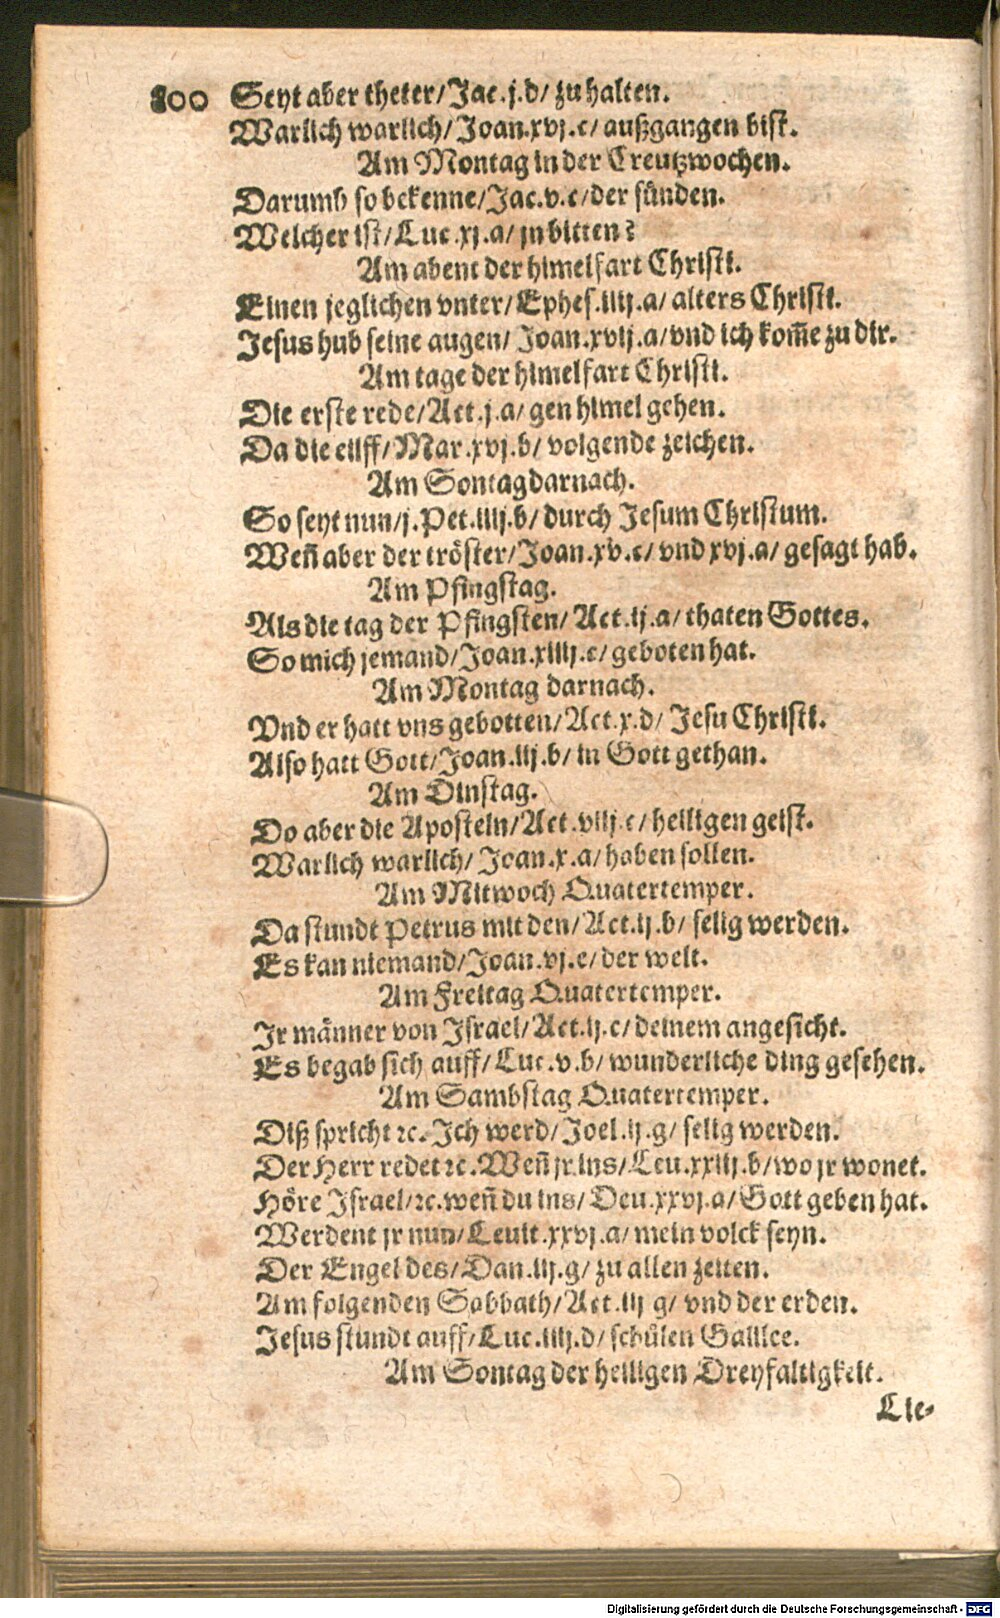 800 Seyt aber theter/Jac.j.d/ zu halten.
Warlich warlich/Joan.xvj.c/außgangen bist.
Am Montag in der Creutzwochen.
Darumb so bekenne/Jac.v.c/der sünden.
Welcher ist/Luc.xj.a/jn bitten?
Am abent der himelfart Christi.
Einen jeglichen vnter/Ephes.iiij.a/alters Christi.
Jesus hub seine augen/Joan.xvij.a/vnd ich kom̃e zu dir.
Am tage der himelfart Christi.
Die erste rede/Act.j.a/gen himel gehen.
Da die eilff/Mar.xvj.b/volgende zeichen.
Am Sontag darnach.
So seyt nun/j.Pet.iiij.b/durch Jesum Christum.
Weñ aber der tröster/Joan.xv.c/vnd xvj.a/gesagt hab.
Am Pfingstag.
Als die tag der Pfingsten/Act.ij.a/thaten Gottes.
So mich jemand/Joan.xiiij.c/geboten hat.
Am Montag darnach.
Vnd er hatt vns gebotten/Act.x.d/Jesu Christi.
Also hatt Gott/Joan.iij.b/in Gott gethan.
Am Dinstag.
Do aber die Aposteln/Act.viij.c/heiligen geist.
Warlich warlich/Joan.x.a/haben sollen.
Am Mitwoch Quatertemper.
Da stundt Petrus mit den/Act.ij.b/selig werden.
Es kan niemand/Joan.vj.e/der welt.
Am Freitag Quatertemper.
Jr männer von Israel/Act.ij.c/deinem angesicht.
Es begab sich auff/Luc.v.b/wunderliche ding gesehen.
Am Sambstag Quatertemper.
Diß spricht ꝛc. Ich werd/Joel.ij.g/selig werden.
Der Herr redet ꝛc. Weñ jr ins/Leu.xxiij.b/wo jr wonet.
Höre Israel/ꝛc. weñ du ins/Deu.xxvj.a/Gott geben hat.
Werdent jr nun/Leuit.xxvj.a/mein volck seyn.
Der Engel des/Dan.iij.g/zu allen zeiten.
Am folgenden Sabbath/Act.iij g/vnd der erden.
Jesus stundt auff/Luc.iiij.d/schůlen Galilee.
Am Sontag der heiligen Dreyfaltigkeit.
Lie-
Digitalisierung gefördert durch die Deutsche Forschungsgemeinschaft - DFG